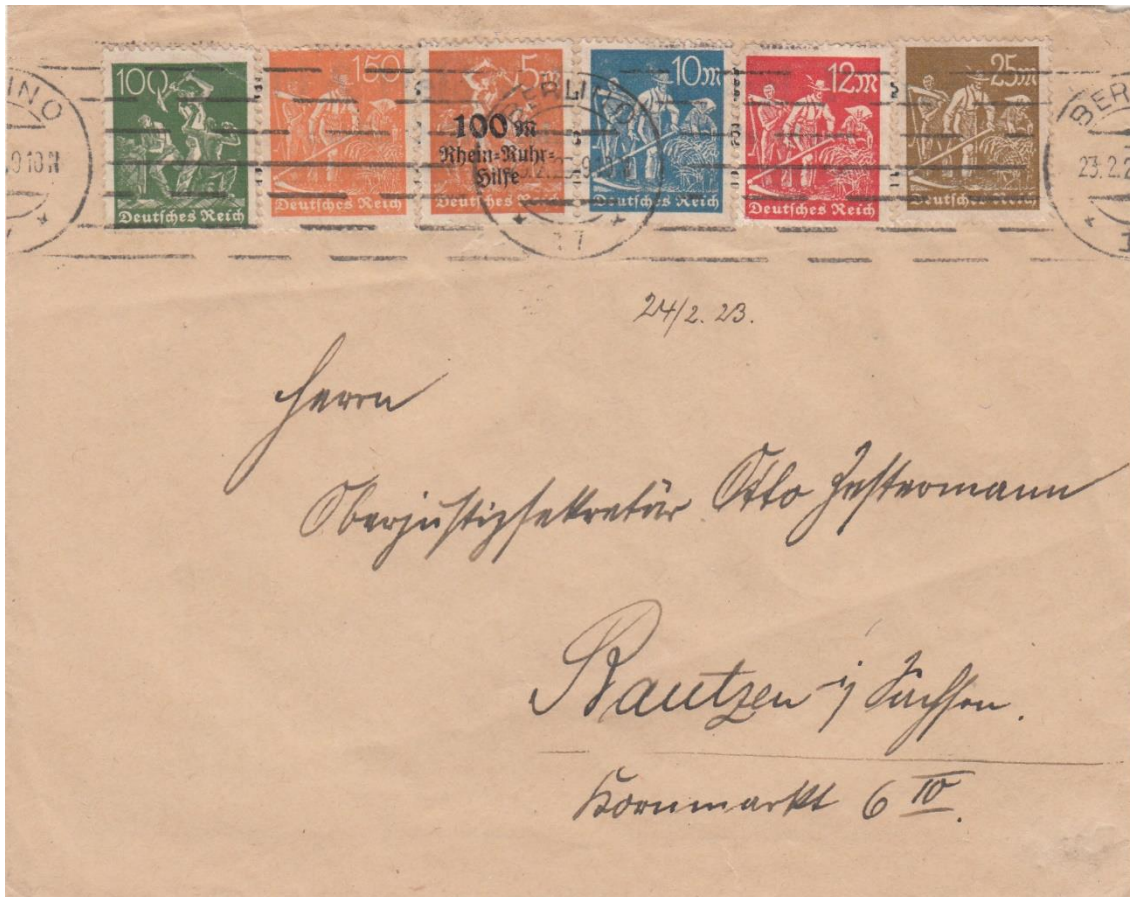 100
Deutsches Reich
150
Deutsches Reich
5M
100 M
Rhein-Ruhr-
Hilfe
Deutsches Reich
10M
Deutsches Reich
12M
Deutsches Reich
25M
Deutsches Reich
BERLIN O
23.2.2
9-10 N
17
24/2. 23.
Herrn
Oberjustizsekretär Otto Zestermann
Bautzen i/ Sachsen.
Kornmarkt 6 III.